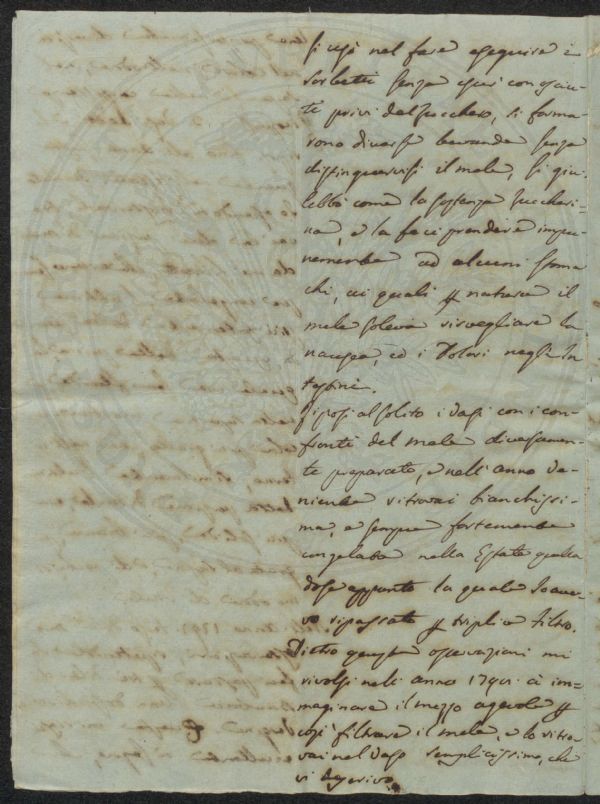 si usò nel fare eseguire i
sorbetti senza esser conosciu-
ti privi del zucchero, si forma-
rono diverse bevande senza
distinguervisi il mele, si giu-
lebbò come la sostanza zuccheri-
na, e la feci prendere impu-
nemente ad alcuni stoma
chi, ai quali natura il
mele soleva risvegliare la
nausea, ed i dolori negli In
testini.
Risposi al solito i vasi con i con-
fronti del mele diversamen-
te preparato, e nell'anno ve-
niente ritrovai bianchissi-
ma, e sempre fortemente
congelata nella Estate quella
dose appunto la quale Io ave-
vo ripassata triplice filtro.
Dietro queste osservazioni mi
rivolsi nell'anno ad im-
maginare il mezzo agevole
così filtrare il mele, e lo ritro-
vai nel vaso semplicissimo, che
vi descrivo